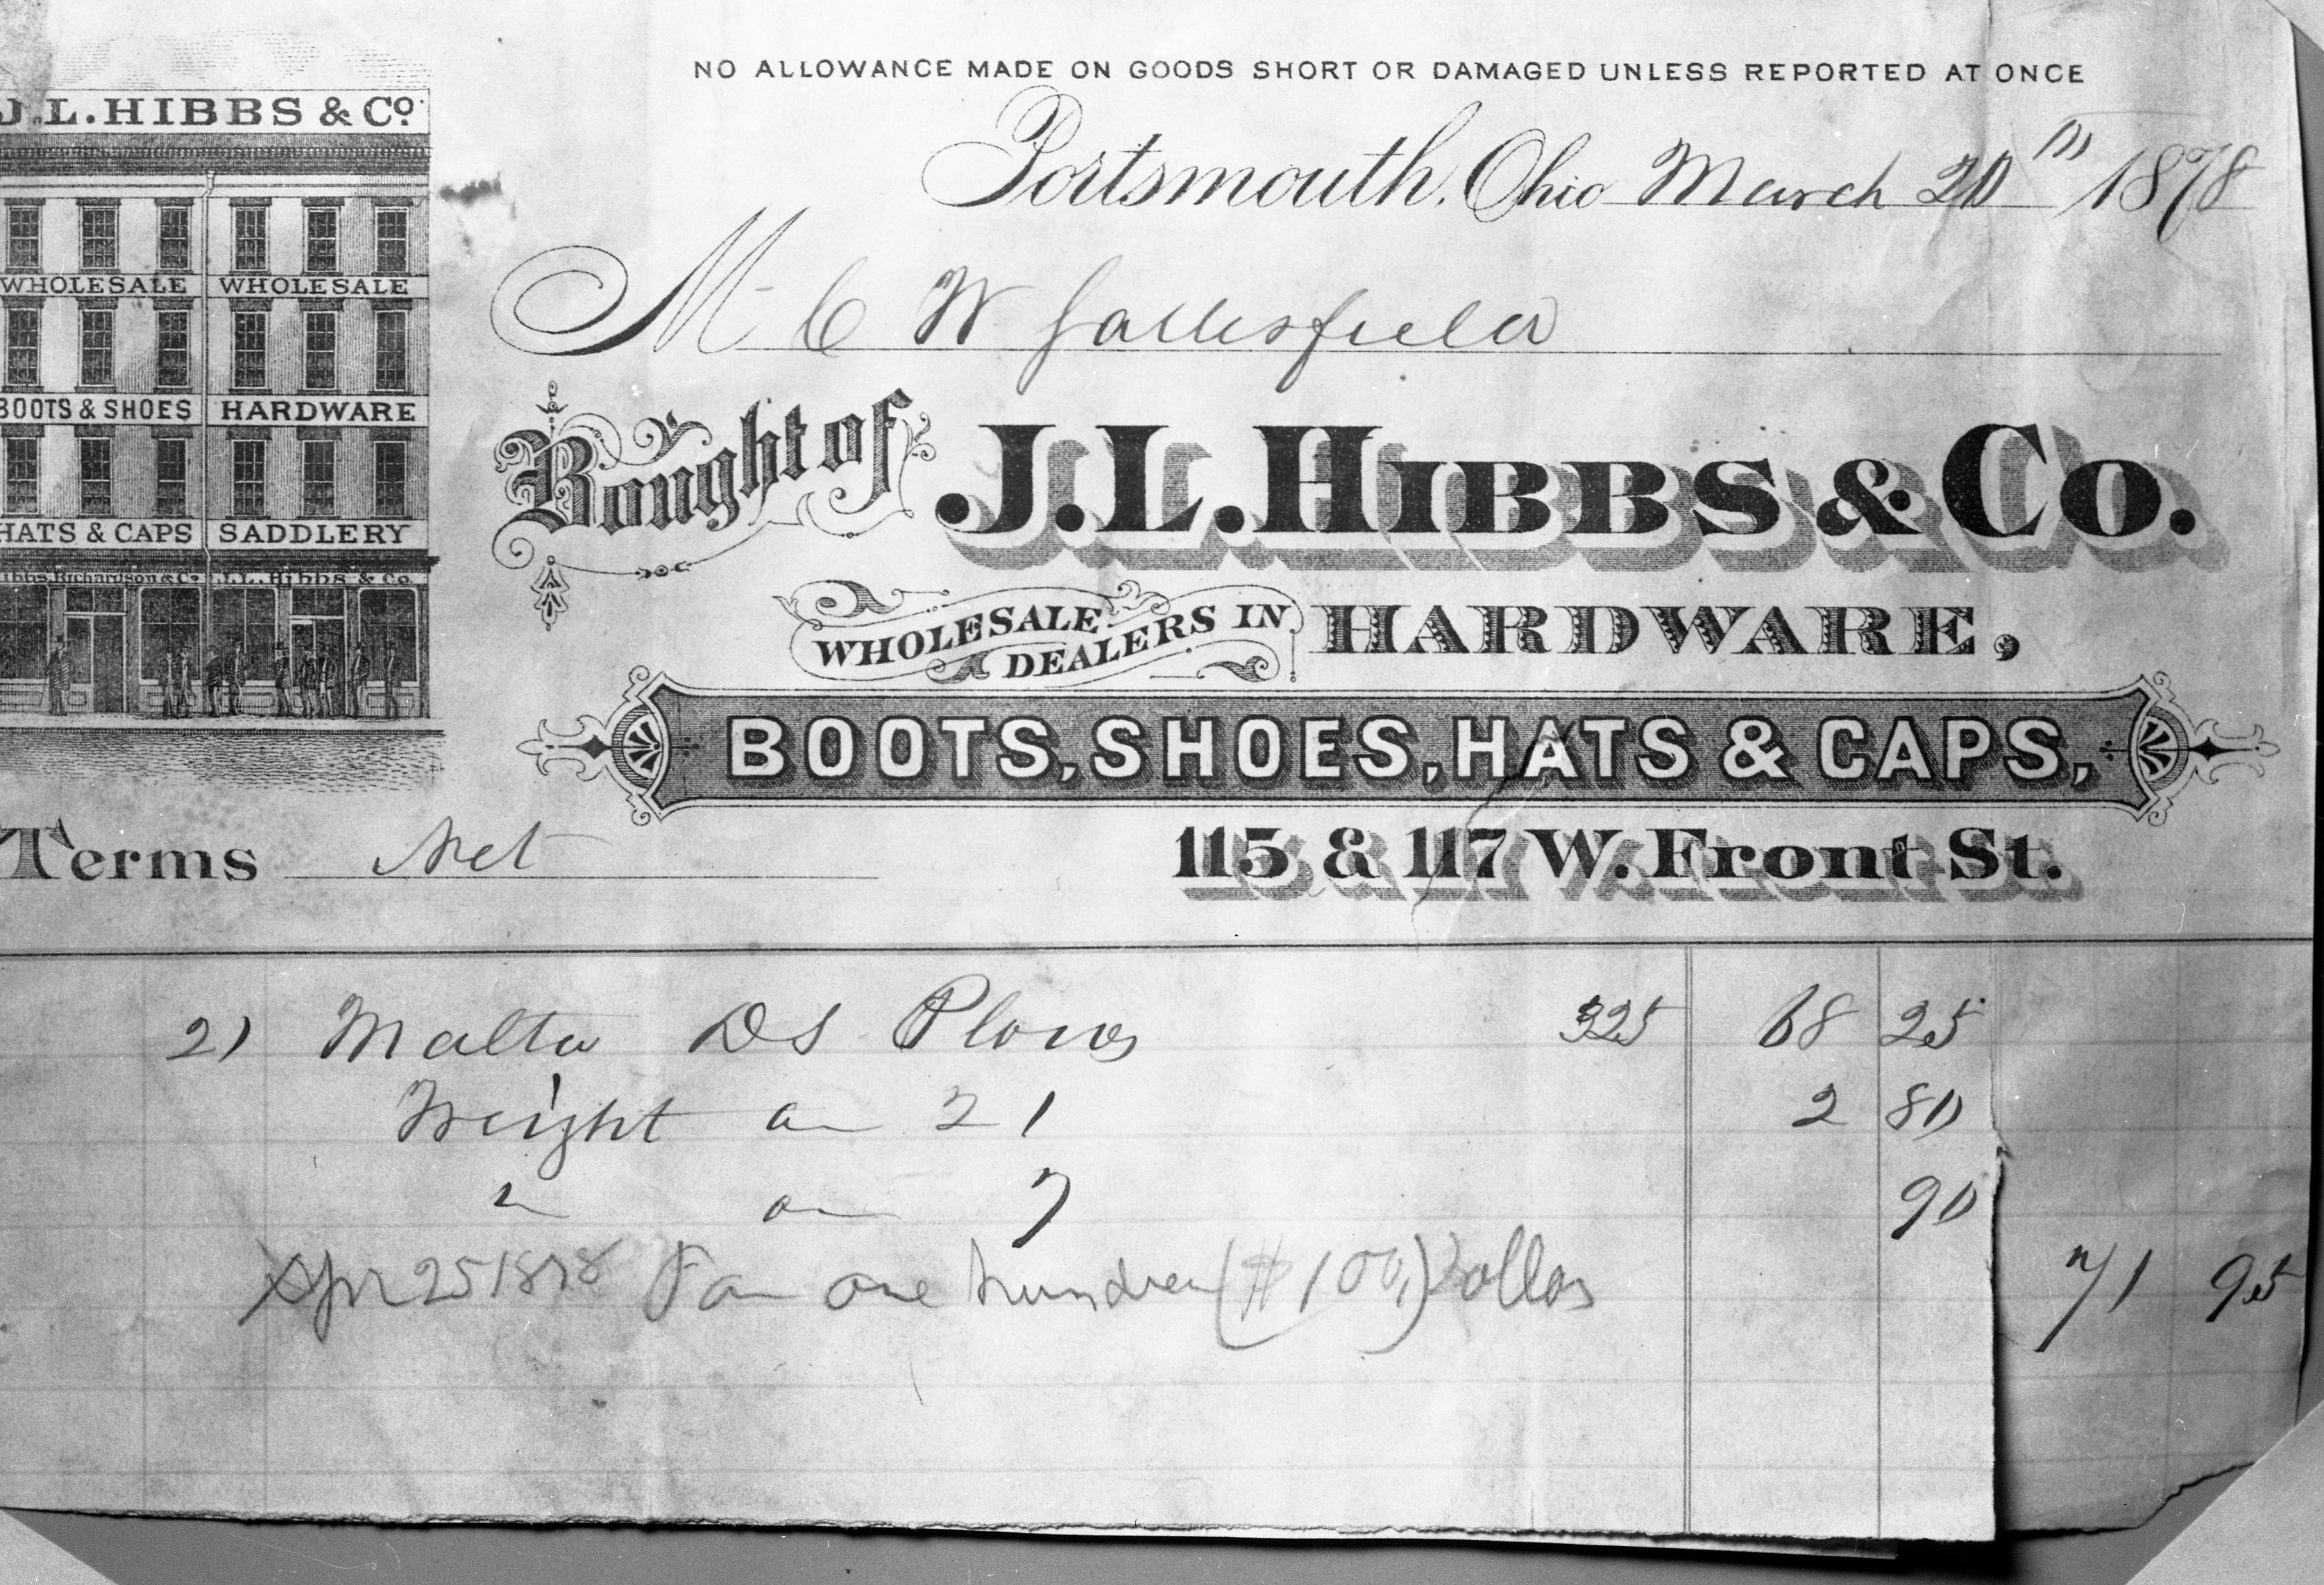 NO ALLOWANCE MADE ON GOODS SHORT OR DAMAGED UNLESS REPORTED AT ONCE
J.L. HIBBS & Co.
WHOLESALE WHOLESALE
BOOTS & SHOES HARDWARE
HATS & CAPS SADDLERY
ibbs, Richardson & Co. J.L. Hibbs & Co.
Portsmouth, Ohio March 20th 1878
M C W
Bought of J.L. HIBBS & Co.
WHOLESALE DEALERS IN HARDWARE,
BOOTS, SHOES, HATS & CAPS,
115 & 117 W. Front St.
Terms Net
21 Malta DS Plows 325 68 25
on 21 2 80
" on 7 90
71 95
Apr 25 1878 one hundred ($100,) Dollars